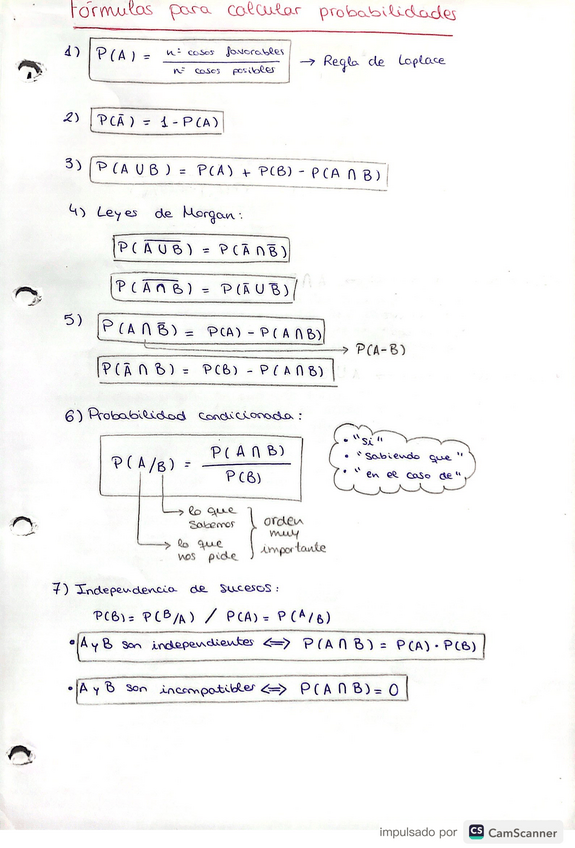 Fórmulas para calcular probabilidades
1) P(A) = nº casos favorables / nº casos posibles → Regla de Laplace
2) P(Ā) = 1 - P(A)
3) P(A ∪ B) = P(A) + P(B) - P(A ∩ B)
4) Leyes de Morgan:
P(A̅ ̅∪̅ ̅B̅) = P(Ā ∩ B̄)
P(A̅ ̅∩̅ ̅B̅) = P(Ā ∪ B̄)
5) P(A ∩ B̄) = P(A) - P(A ∩ B)
→ P(A-B)
P(Ā ∩ B) = P(B) - P(A ∩ B)
6) Probabilidad condicionada:
P(A/B) = P(A ∩ B) / P(B)
• "Si"
• "sabiendo que"
• "en el caso de"
→ lo que
sabemos
→ lo que
nos pide
orden
muy
importante
7) Independencia de sucesos:
P(B) = P(B/A) / P(A) = P(A/B)
• A y B son independientes ⟺ P(A ∩ B) = P(A) · P(B)
• A y B son incompatibles ⟺ P(A ∩ B) = 0
impulsado por CS CamScanner